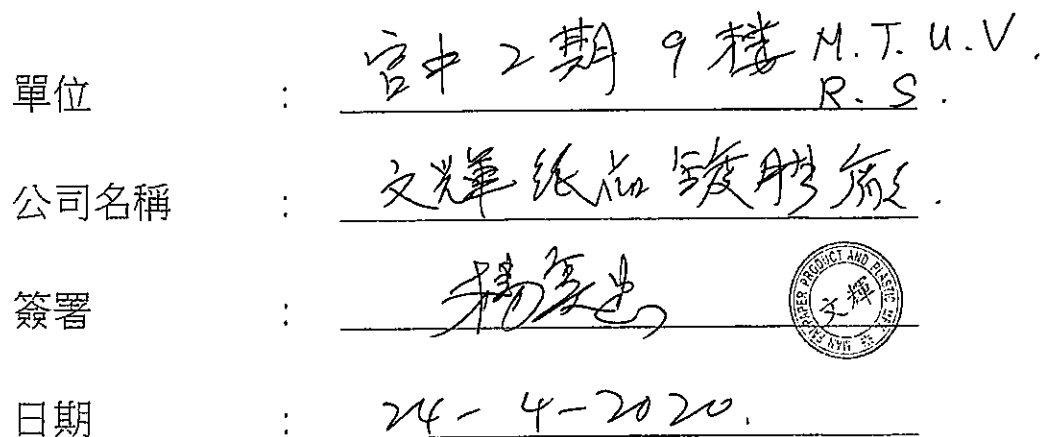 單位 : 宮中2期9樓 M.T.U.V.
R.S.
公司名稱 : 文輝紙品鍍膠廠.
簽署 :
PAPER PRODUCT AND PLASTIC
文輝
日期 : 24-4-2020.